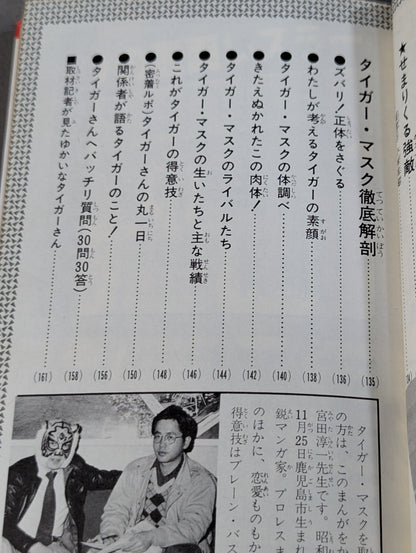 ★せまりくる強敵
タイガー・マスク徹底解剖
(135)
■ズバリ!正体をさぐる
(136)
●わたしが考えるタイガーの素顔
(138)
●タイガー・マスクの体調べ
(140)
●きたえぬかれたこの肉体!
(142)
●タイガー・マスクのライバルたち
(144)
●タイガー・マスクの生いたちと主な戦績
(146)
●これがタイガーの得意技
(148)
●(密着ルポ)タイガーさんの丸一日
(150)
●関係者が語るタイガーのこと!
(156)
●タイガーさんへバッチリ質問(30問30答)
(158)
■取材記者が見たゆかいなタイガーさん
(161)
タイガー・マスクを取
の方は、このまんがをか
宮田淳一先生です。昭和
11月25日鹿児島市生まれ
鋭マンガ家。プロレスま
のほかに、恋愛ものもか
得意技はブレーン・バス